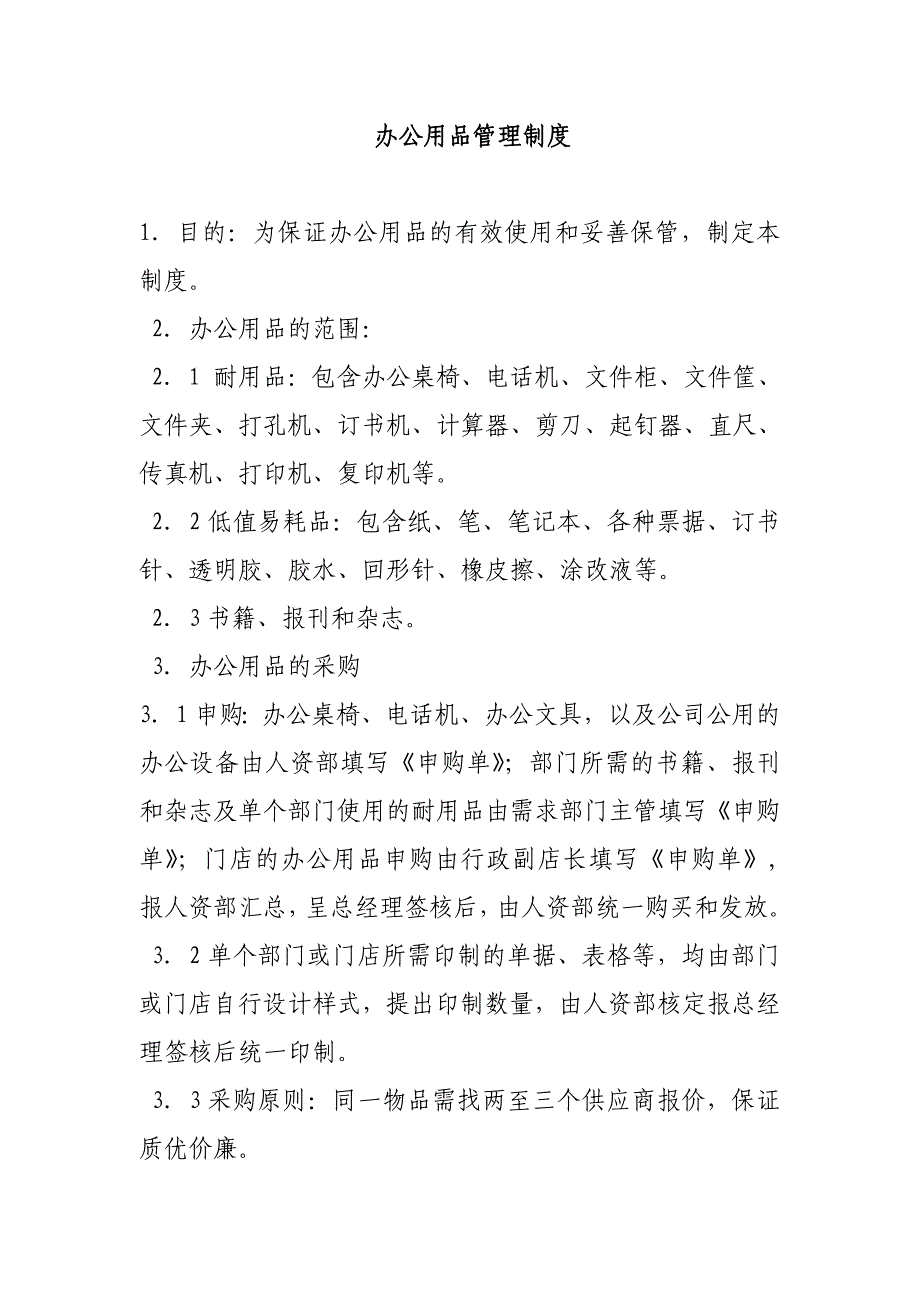 办公用品管理制度
1．目的：为保证办公用品的有效使用和妥善保管，制定本
制度。
2．办公用品的范围：
2．1 耐用品：包含办公桌椅、电话机、文件柜、文件筐、
文件夹、打孔机、订书机、计算器、剪刀、起钉器、直尺、
传真机、打印机、复印机等。
2．2低值易耗品：包含纸、笔、笔记本、各种票据、订书
针、透明胶、胶水、回形针、橡皮擦、涂改液等。
2．3书籍、报刊和杂志。
3．办公用品的采购
3．1申购：办公桌椅、电话机、办公文具，以及公司公用的
办公设备由人资部填写《申购单》；部门所需的书籍、报刊
和杂志及单个部门使用的耐用品由需求部门主管填写《申购
单》；门店的办公用品申购由行政副店长填写《申购单》，
报人资部汇总，呈总经理签核后，由人资部统一购买和发放。
3．2单个部门或门店所需印制的单据、表格等，均由部门
或门店自行设计样式，提出印制数量，由人资部核定报总经
理签核后统一印制。
3．3采购原则：同一物品需找两至三个供应商报价，保证
质优价廉。